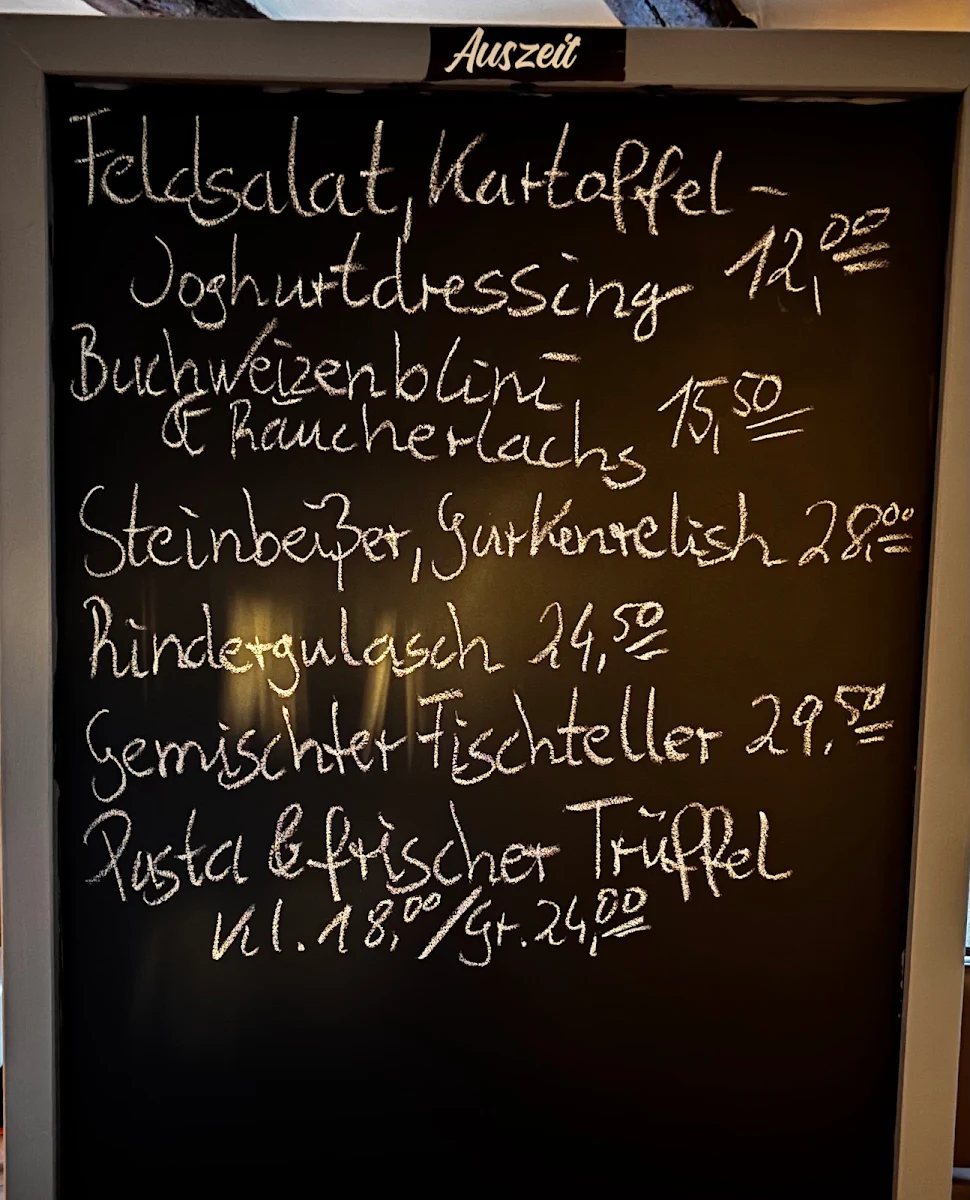 Auszeit
Feldsalat, Kartoffel-
Joghurtdressing 12,00
Buchweizenblini
& Räucherlachs 15,50
Steinbeißer, Gurkenrelish 28,00
Rindergulasch 24,50
Gemischter Fischteller 29,50
Pasta & frischer Trüffel
Kl. 18,00/Gr. 24,00